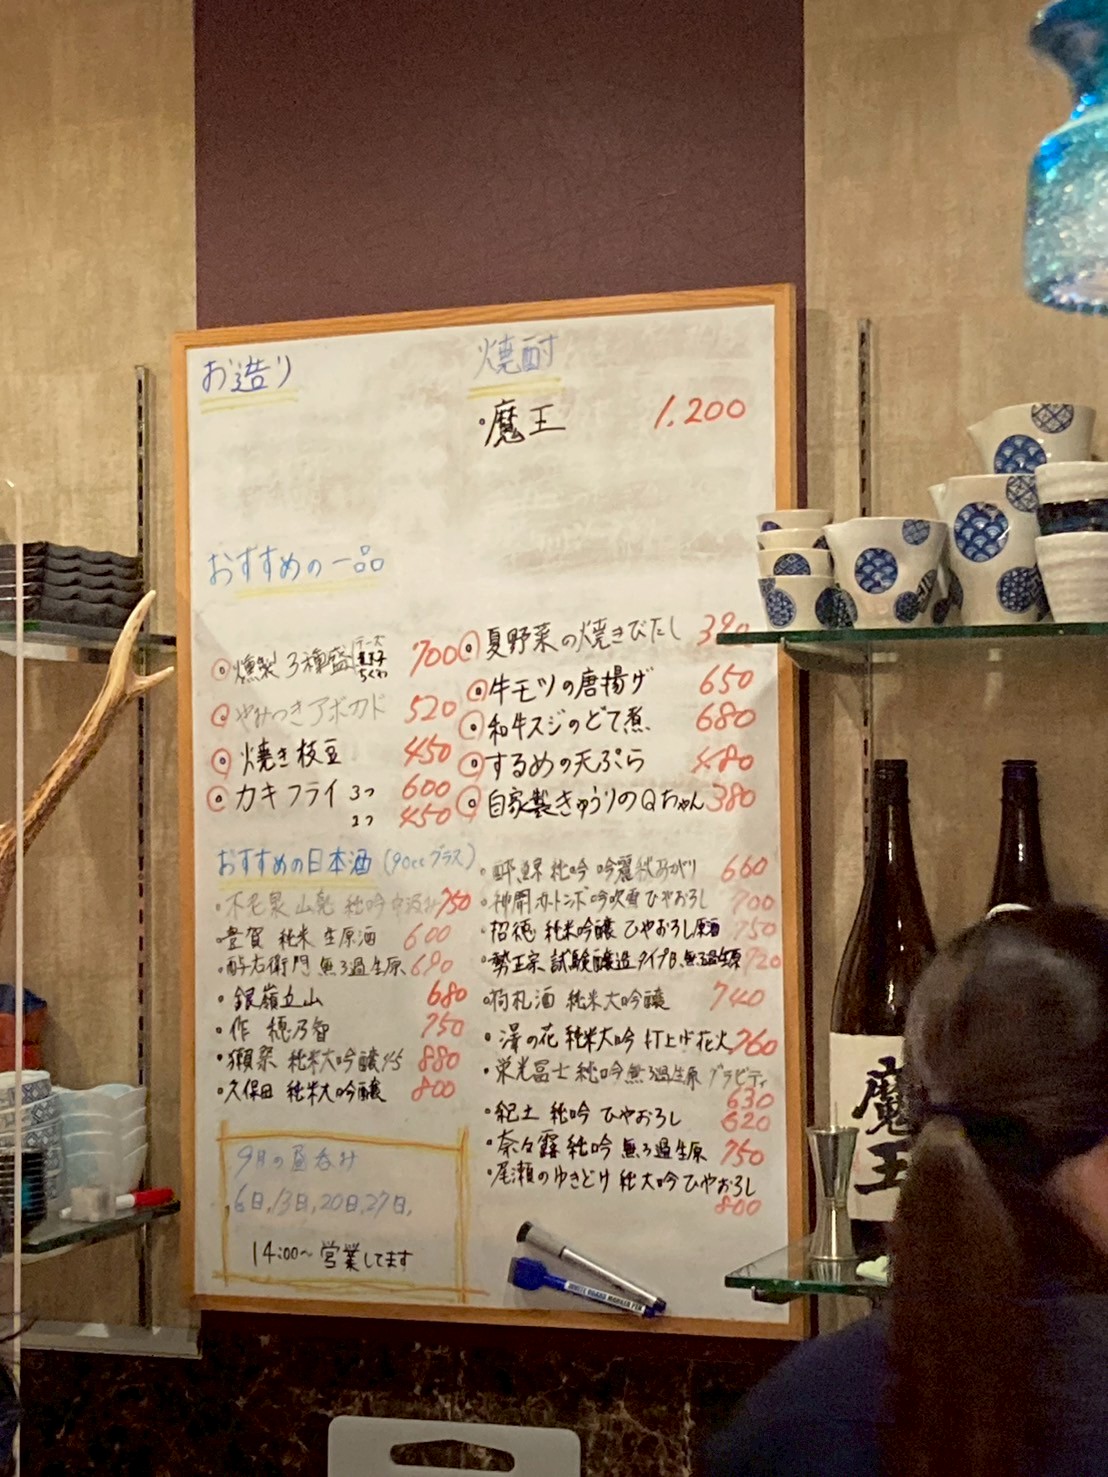 お造り
焼酎
・魔王 1.200
おすすめの一品
燻製 3種盛 チーズ 玉子 ちくわ 700
やみつきアボカド 520
焼き枝豆 450
カキフライ 3つ 600
2つ 450
夏野菜の焼きびたし 390
牛モツの唐揚げ 650
和牛スジのどて煮 680
するめの天ぷら 480
自家製きゅうりのQちゃん 380
おすすめの日本酒 (90ccグラス)
・不老泉 山廃 純吟 中汲み 750
・豊賀 純米 生原酒 600
・酔右衛門 無ろ過生原 690
・銀嶺立山 680
・作 穂乃智 750
・獺祭 純米大吟醸45 880
・久保田 純米大吟醸 800
・酔鯨 純吟 吟麗秋あがり 660
・神開 吟吹雪 ひやおろし 700
・招徳 純米吟醸 ひやおろし原酒 750
・勢正宗 試験醸造 タイプB 無ろ過生原 720
・拘札酒 純米大吟醸 740
・湯の花 純米大吟 打上げ花火 760
・栄光冨士 純吟無ろ過生原 グラビティ 630
・紀土 純吟 ひやおろし 620
・奈々露 純吟 無ろ過生原 750
・尾瀬のゆきどけ 純大吟 ひやおろし 800
9月の昼呑み
6日,13日,20日,27日,
14:00~営業してます
WHITE BOARD MARKER PEN
魔王